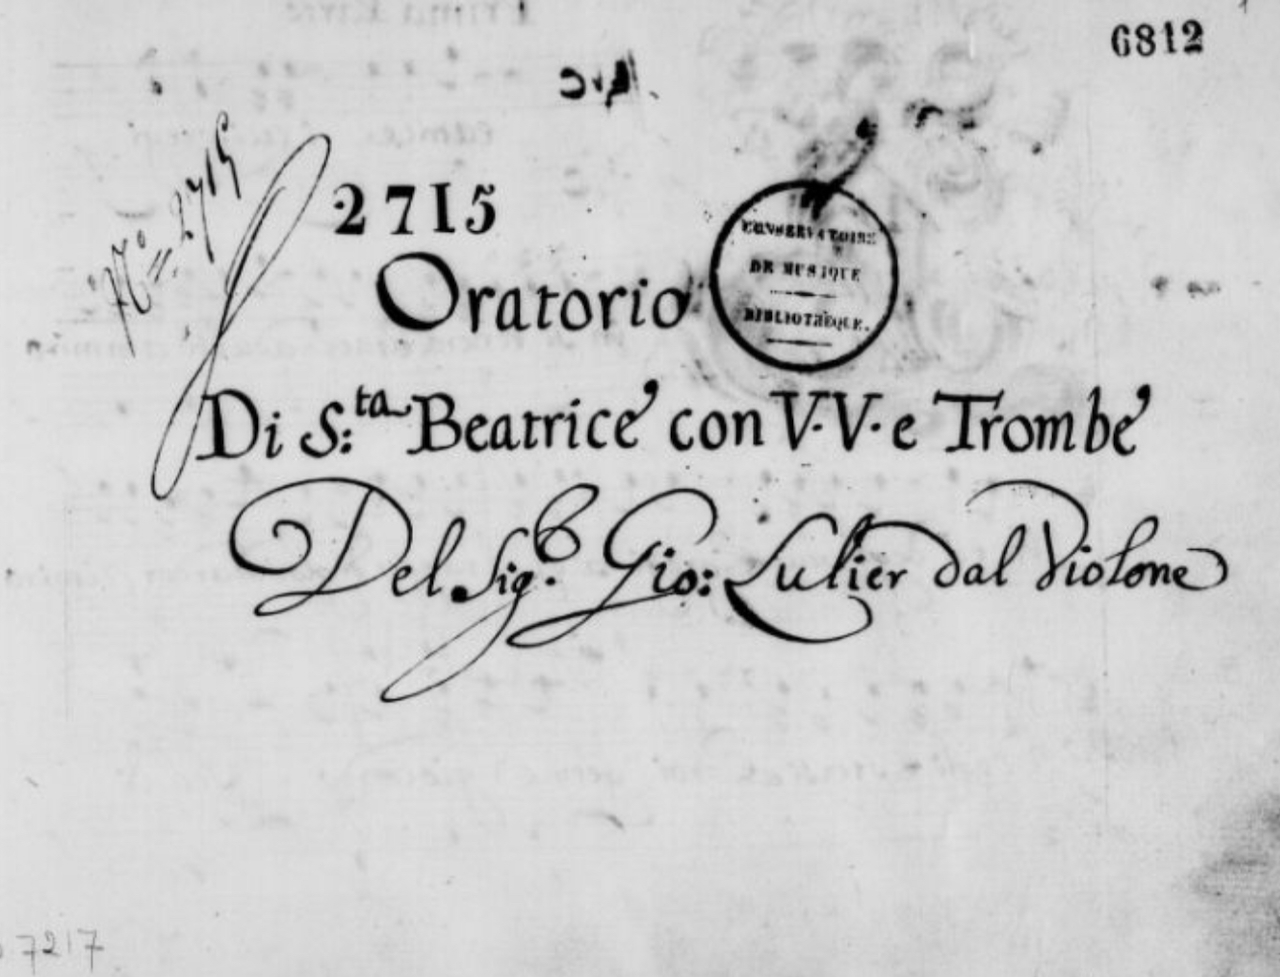 6812
N.º = 2715
2715
Oratorio
CONSERVATOIRE
DE MUSIQUE
BIBLIOTHÈQUE.
Di S:ta Beatrice con V.V. e Trombe
Del Sig.r Gio: Lulier dal Violone
7217